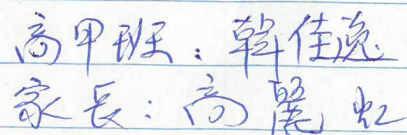 高甲班：韓佳逸
家長：高麗虹